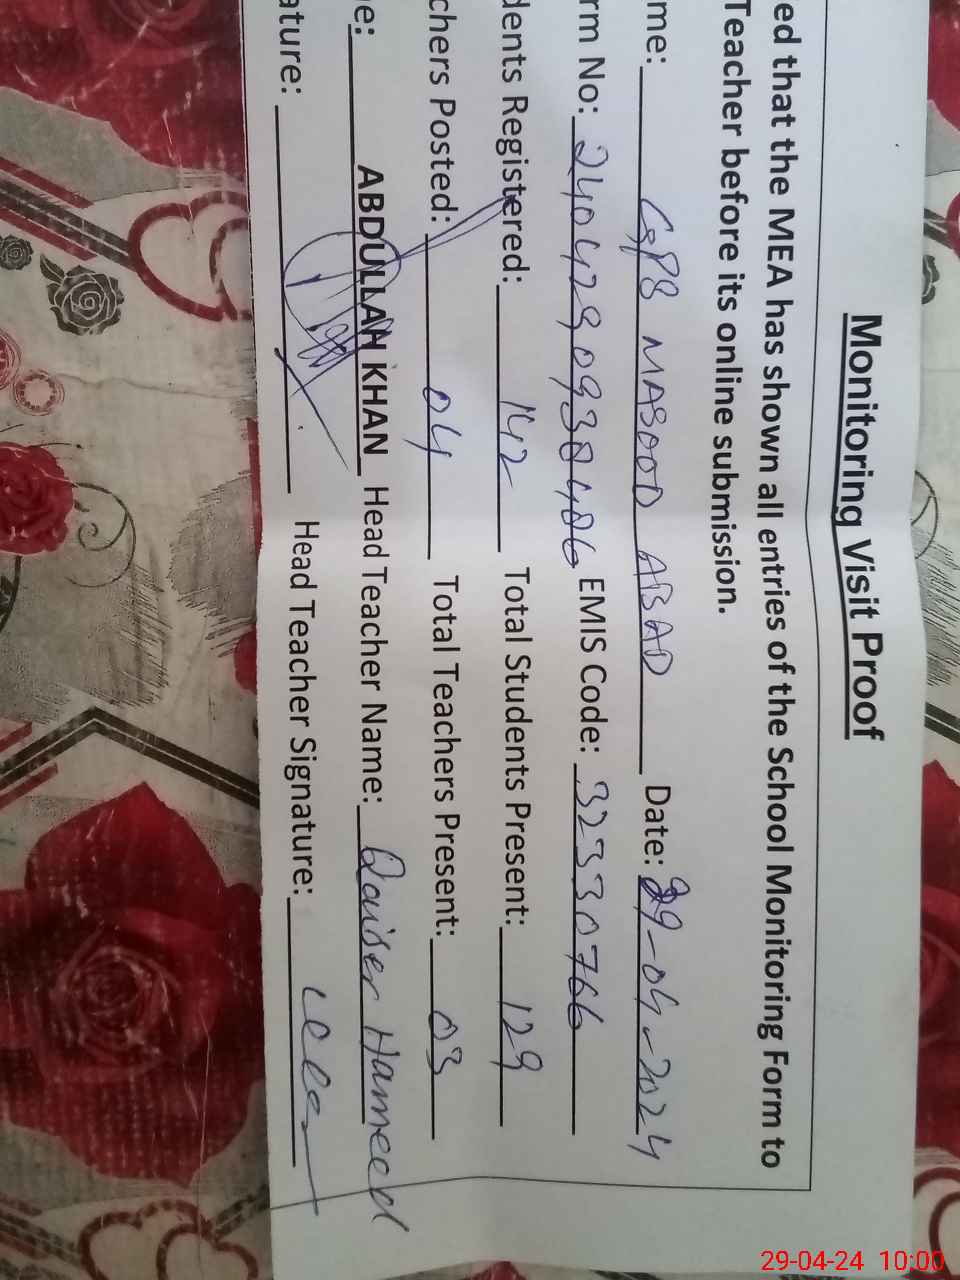 Monitoring Visit Proof
ed that the MEA has shown all entries of the School Monitoring Form to
Teacher before its online submission.
me: GPS MASOOD ABAD Date: 29-04-2024
rm No: 2404290930486 EMIS Code: 32330766
dents Registered: 142 Total Students Present: 129
chers Posted: 04 Total Teachers Present: 03
e: ABDULLAH KHAN Head Teacher Name: Qaiser Hameed
ature: Head Teacher Signature:
29-04-24 10:00